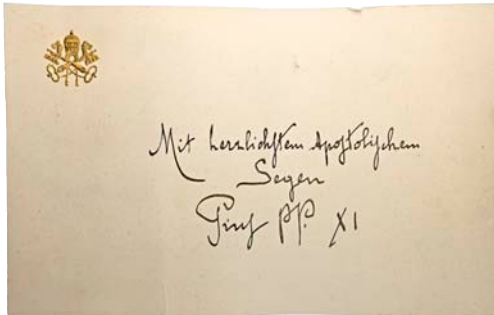 Mit herzlichstem Apostolischem
Segen
Pius PP. XI